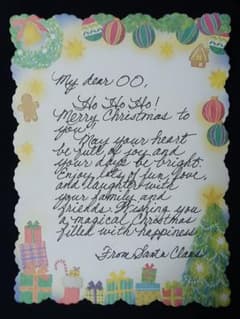 My dear OO,
Ho Ho Ho!
Merry Christmas to
you!
May your heart
be full of joy and
your days be bright.
Enjoy lots of fun, love,
and laughter with
your family and
friends. Wishing you
a magical Christmas
filled with happiness
From Santa Claus